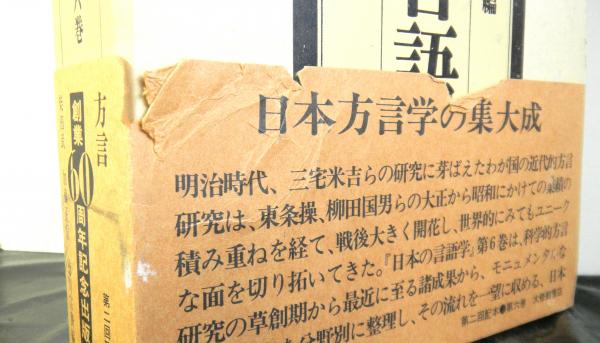 編
言語
六巻
方言
創業60周年記念出版
第二回
日本方言学の集大成
明治時代、三宅米吉らの研究に芽ばえたわが国の近代的方言
研究は、東条操、柳田国男らの大正から昭和にかけての業績の
積み重ねを経て、戦後大きく開花し、世界的にみてもユニーク
な面を切り拓いてきた。『日本の言語学』第6巻は、科学的方言
研究の草創期から最近に至る諸成果から、モニュメンタルな
分野別に整理し、その流れを一望に収める、日本
第二回配本●第六巻 大修館書店